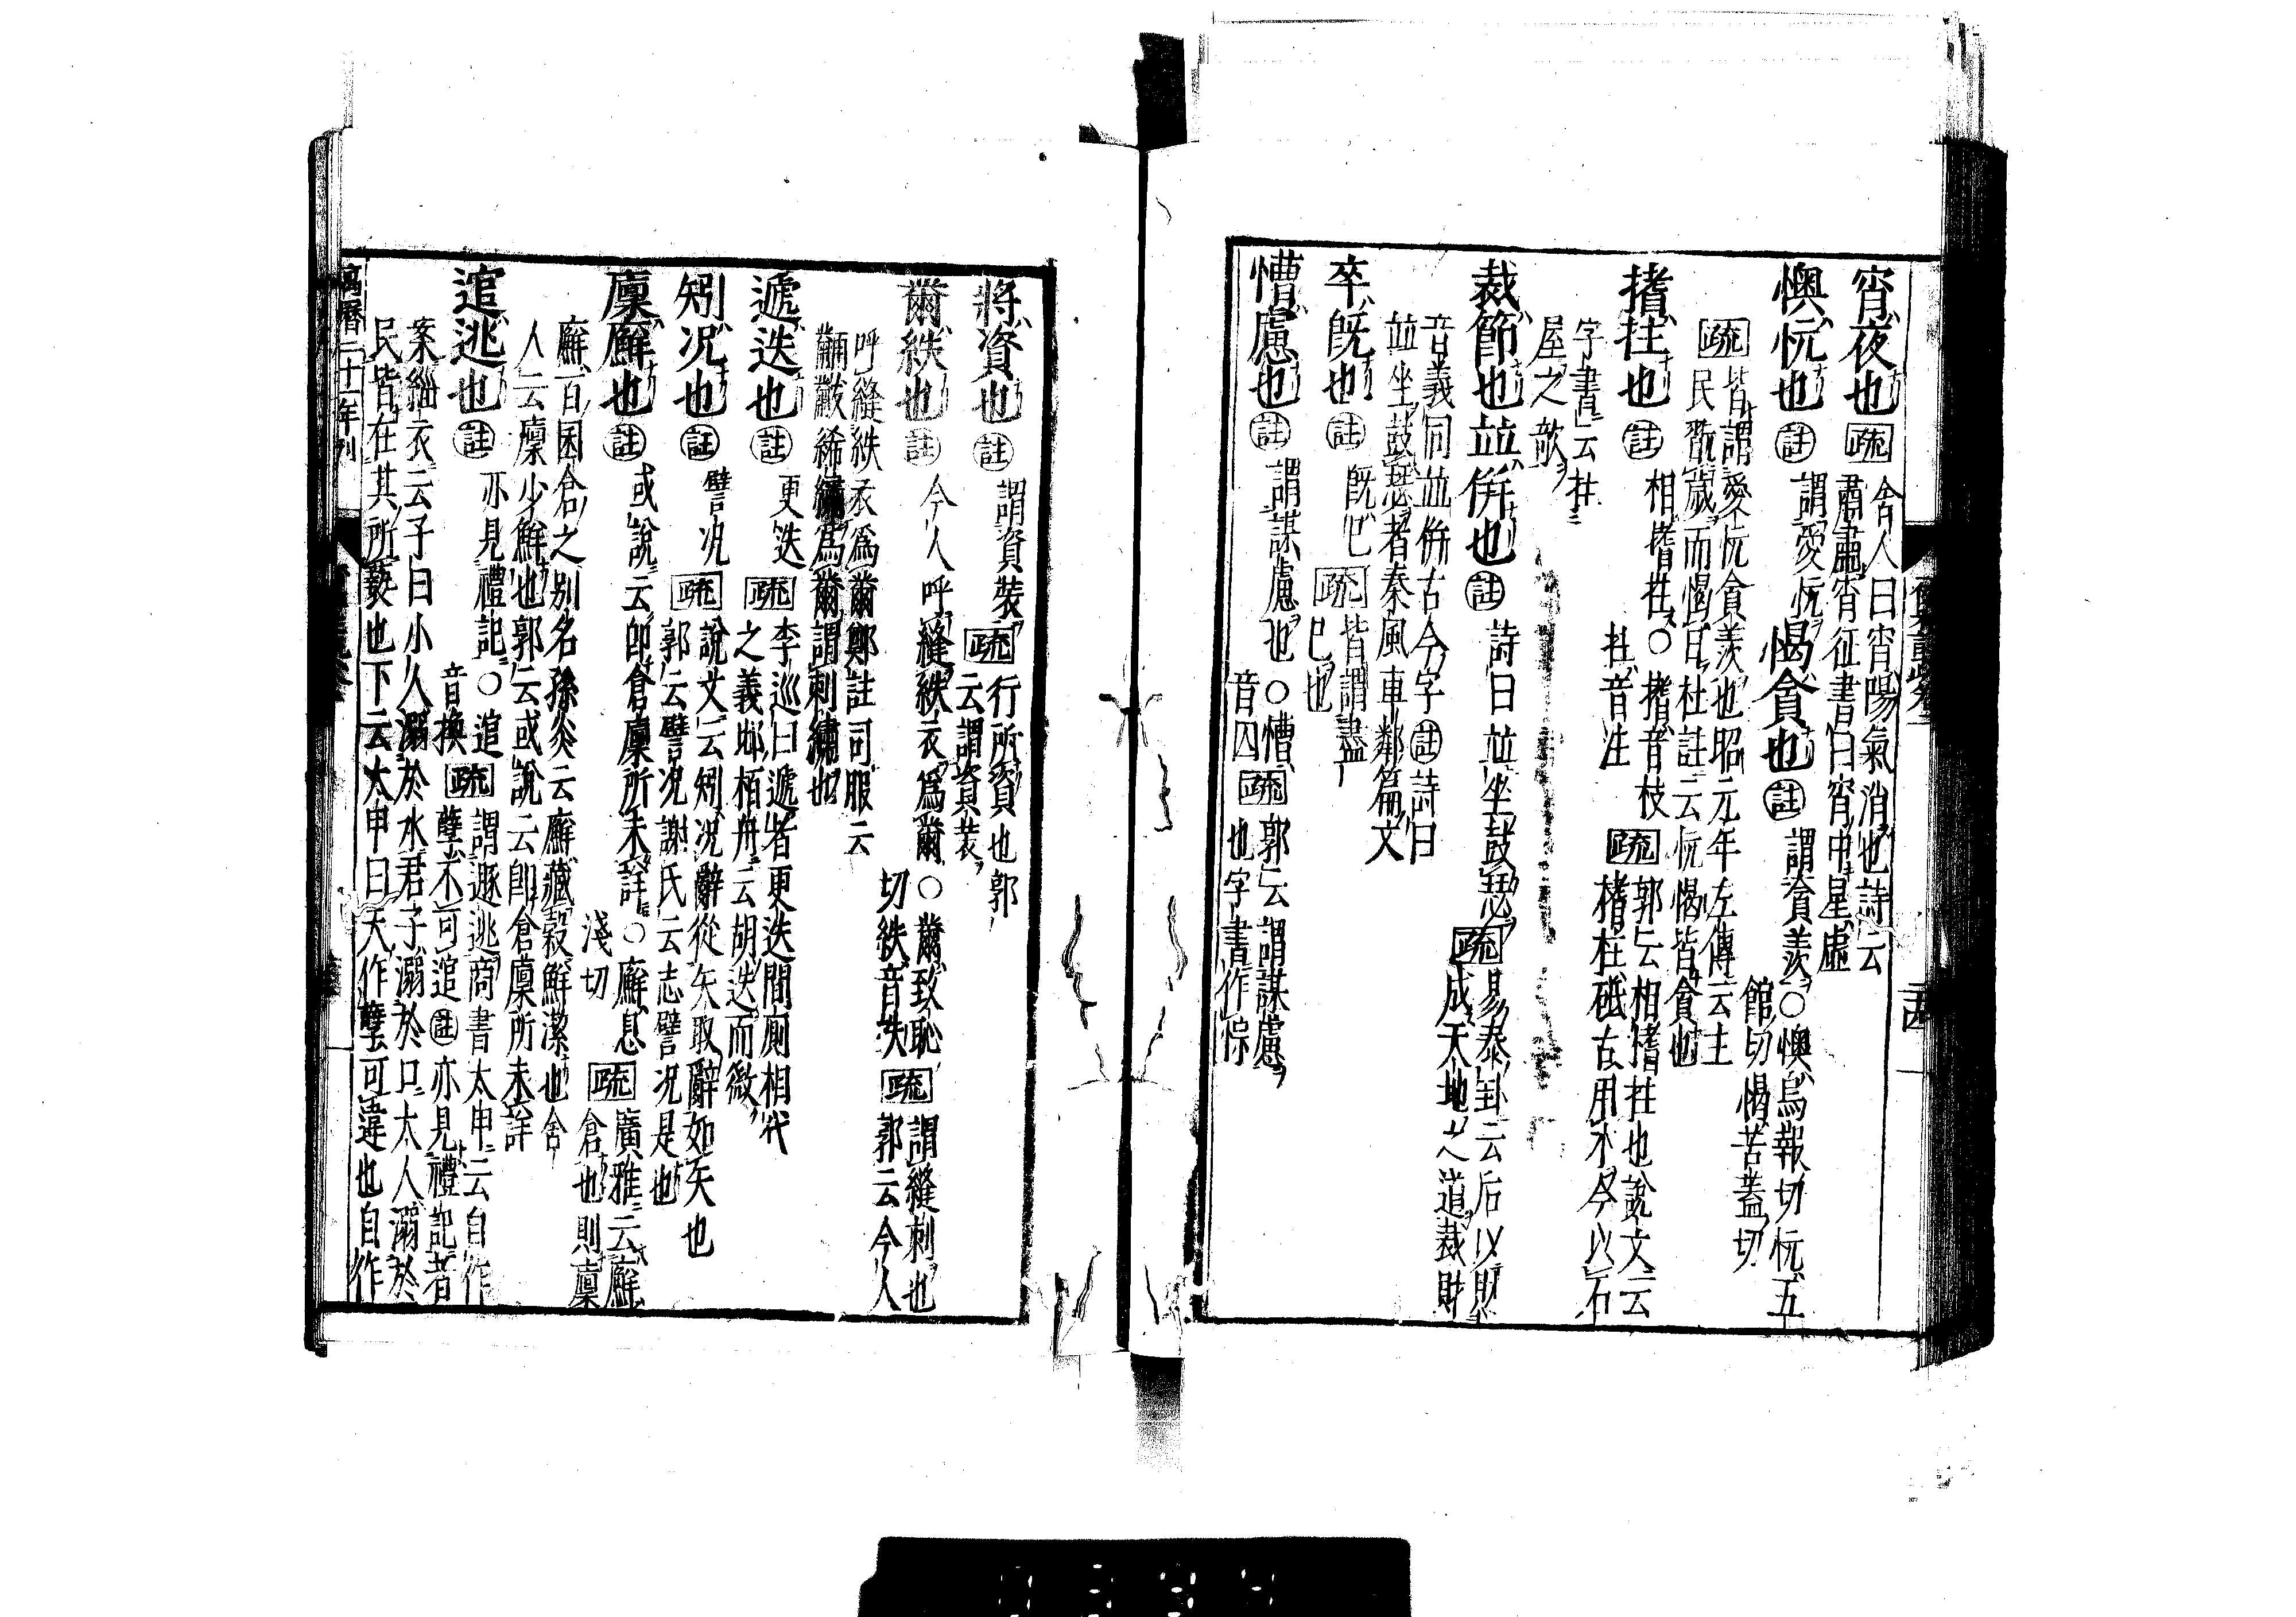 宵夜也疏舍人曰宵陽氣消也詩云
肅肅宵征書曰宵中星虛
懊忨也註謂愛忨愒貪也註謂貪羨○懊烏報切忨五
館切愒苦蓋切
疏皆謂愛忨貪羨也昭元年左傳云主
民翫歲而愒日杜註云忨愒皆貪也
搘拄也註相搘拄○搘音枝
拄音注
疏郭云相搘拄也說文云
榰柱砥古用木今以石
字書云拄
屋之欹
裁節也並併也註詩曰並坐鼓瑟疏易泰卦云后以財
成天地之道裁財
音義同並併古今字註詩曰
並坐鼓瑟者秦風車鄰篇文
卒既也註既已疏皆謂盡
已也
慒慮也註謂謀慮也○慒
音囚疏郭云謂謀慮
也字書作悰
將資也註謂資裝疏行所資也郭
云謂資裝
黹紩也註今人呼縫紩衣爲黹○黹致恥
切紩音失疏謂縫刺也
郭云今人
呼縫紩衣爲黹鄭註司服云
黼黻絺繡爲黹謂刺繡也
遞迭也註更迭疏李巡曰遞者更迭間廁相代
之義邶柏舟云胡迭而微
矧况也註譬况疏說文云矧况辭從矢取辭如矢也
郭云譬况謝氏云志譬况是也
廩廯也註或說云即倉廩所未詳○廯息
淺切疏廣雅云廯
倉也則廩
廯百囷倉之别名孫炎云廯藏穀鮮潔也舍
人云廩少鮮也郭云或說云即倉廩所未詳
逭逃也註亦見禮記○逭
音換疏謂遯逃商書太甲云自作
孽不可逭註亦見禮記者
案緇衣云子曰小人溺於水君子溺於口大人溺於
民皆在其所褻也下云太甲曰天作孽可違也自作
萬曆二十一年刊